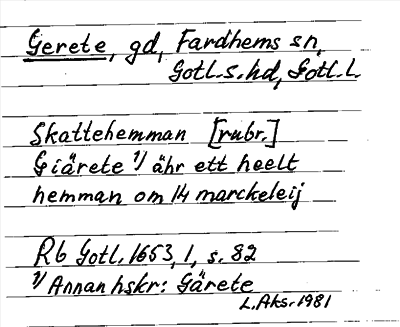 Gerete, gd, Fardhems sn,
Gotl. s. hd, Gotl. l.
Skattehemman [rubr.]
Giärete 1/ ähr ett heelt
hemman om 14 marckeleij
Rb Gotl. 1653, 1, s. 82
1/ Annan hskr: Gärete
L. Aks. 1981